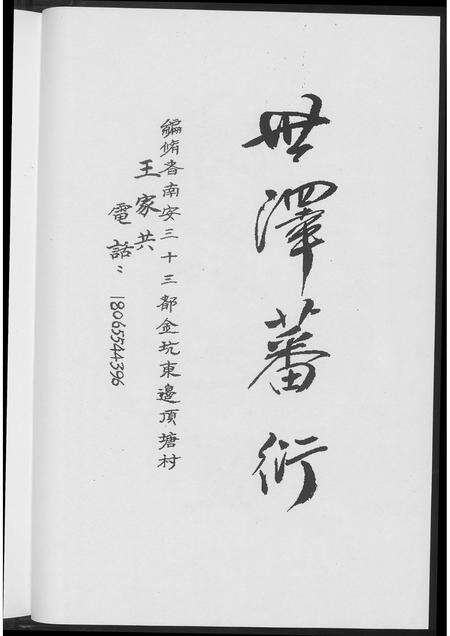 世澤蕃衍
編脩者南安三十三都金坑東邊頂塘村
王家共
電話：18065544396